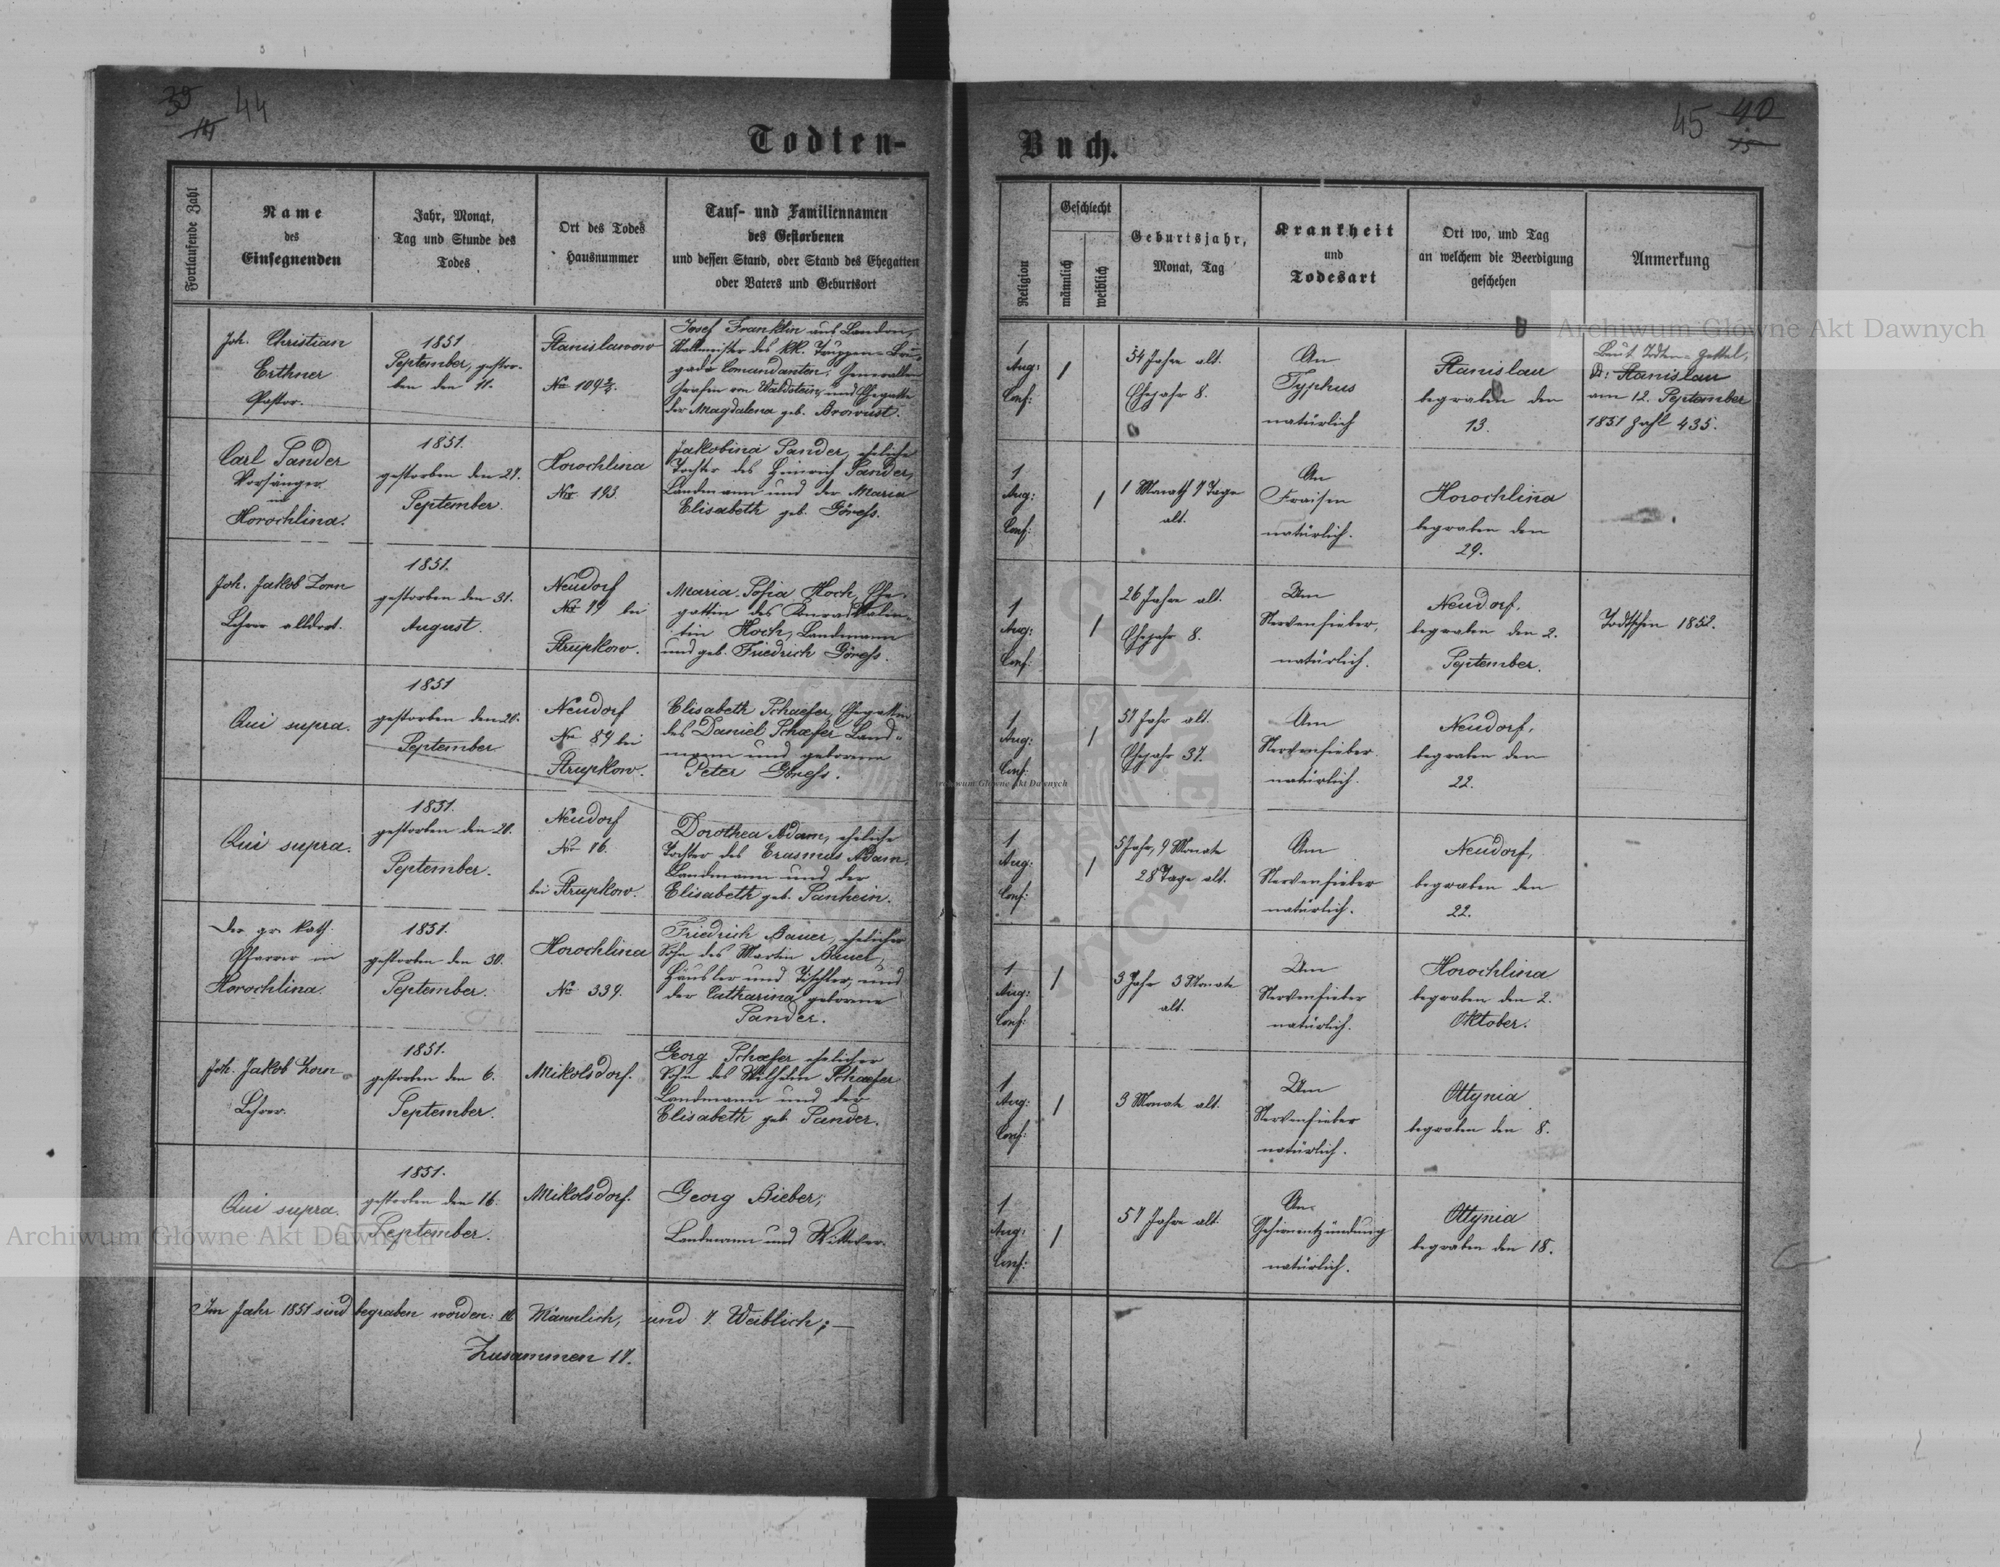 39 44
14
Todten-
Fortlaufende Zahl
Name
des
Einsegnenden
Jahr, Monat,
Tag und Stunde des
Todes
Ort des Todes
Hausnummer
Tauf- und Familiennamen
des Gestorbenen
und dessen Stand, oder Stand des Ehegatten
oder Vaters und Geburtsort
Joh. Christian
Erthner
Pastor.
1851
September, gestor-
ben den 11.
Stanislawow
No 109 2/4.
Josef Franklin aus London,
des kk. Truppen-Bri-
gade Comandanten,
Grafen von Waldstein, und Ehegatte
der Magdalena geb.
Carl Sander
Vorsänger
in
Horochlina.
1851.
gestorben den 27.
September.
Horochlina
No 193
Jakobina Sander, eheliche
Tochter des Heinrich Sander,
Landmann und der Maria
Elisabeth geb. Göress.
Joh. Jakob Zorn
Lehrer alldort.
1851.
gestorben den 31.
August.
Neudorf
No 99 bei
Strupkow.
Maria Sofia Hoch, Ehe-
gattin des Konrad Valen-
tin Hoch, Landmann
und geb. Friedrich Göress.
Qui supra.
1851
gestorben den 20.
September
Neudorf
No 87 bei
Strupkow.
Elisabeth Schaefer, Ehegattin
des Daniel Schaefer Land-
mann und geborene
Peter Göress.
Qui supra.
1851.
gestorben den 20.
September.
Neudorf
No 16.
bei Strupkow.
Dorothea Adam, eheliche
Tochter des Erasmus Adam,
Landmann und der
Elisabeth geb. Sanhein.
Der gr. kath.
Pfarrer in
Horochlina
1851.
gestorben den 30.
September.
Horochlina
No 339.
Friedrich Bauer, ehelicher
Sohn des Martin Bauer,
Häusler und Tischler, und
der Catharina geborene
Sander.
Joh. Jakob Zorn
Lehrer.
1851.
gestorben den 6.
September.
Mikolsdorf.
Georg Schaefer ehelicher
Sohn des Wilhelm Schaefer
Landmann und der
Elisabeth geb. Sander.
Qui supra.
1851.
gestorben den 16.
September.
Mikolsdorf.
Georg Bieber,
Landmann und Wittwer.
Im Jahr 1851 sind begraben worden: 10 Männlich, und 7. Weiblich; —
Zusammen 17.
45 40
15
Buch.
Religion
Geschlecht
männlich
weiblich
Geburtsjahr,
Monat, Tag
Krankheit
und
Todesart
Ort wo, und Tag
an welchem die Beerdigung
geschehen
Anmerkung
1
Aug:
Conf:
1
54 Jahre alt.
Ehejahr 8.
An
Typhus
natürlich
Stanislau
begraben den
13.
Laut Todten-Zettel,
Stanislau
am 12. September
1851 Zahl 435.
1
Aug:
Conf:
1
1 Monat 7 Tage
alt.
An
Fraisen
natürlich.
Horochlina
begraben den
29.
1
Aug:
Conf:
1
26 Jahre alt.
Ehejahr 8.
Am
Nervenfieber,
natürlich.
Neudorf.
begraben den 2.
September.
Todtschein 1852.
1
Aug:
Conf:
1
57 Jahr alt.
Ehejahr 37.
Am
Nervenfieber
natürlich.
Neudorf,
begraben den
22.
1
Aug:
Conf:
1
5 Jahr, 9 Monate
28 Tage alt.
Am
Nervenfieber
natürlich.
Neudorf,
begraben den
22.
1
Aug:
Conf:
1
3 Jahr 3 Monate
alt.
Am
Nervenfieber
natürlich.
Horochlina
begraben den 2.
Oktober.
1
Aug:
Conf:
1
3 Monate alt.
Am
Nervenfieber
natürlich.
Ottynia
begraben den 8.
1
Aug:
Conf:
1
57 Jahre alt.
An
Gehirnentzündung
natürlich.
Ottynia
begraben den 18.
Archiwum Główne Akt Dawnych
Archiwum Główne Akt Dawnych
Archiwum Główne Akt Dawnych